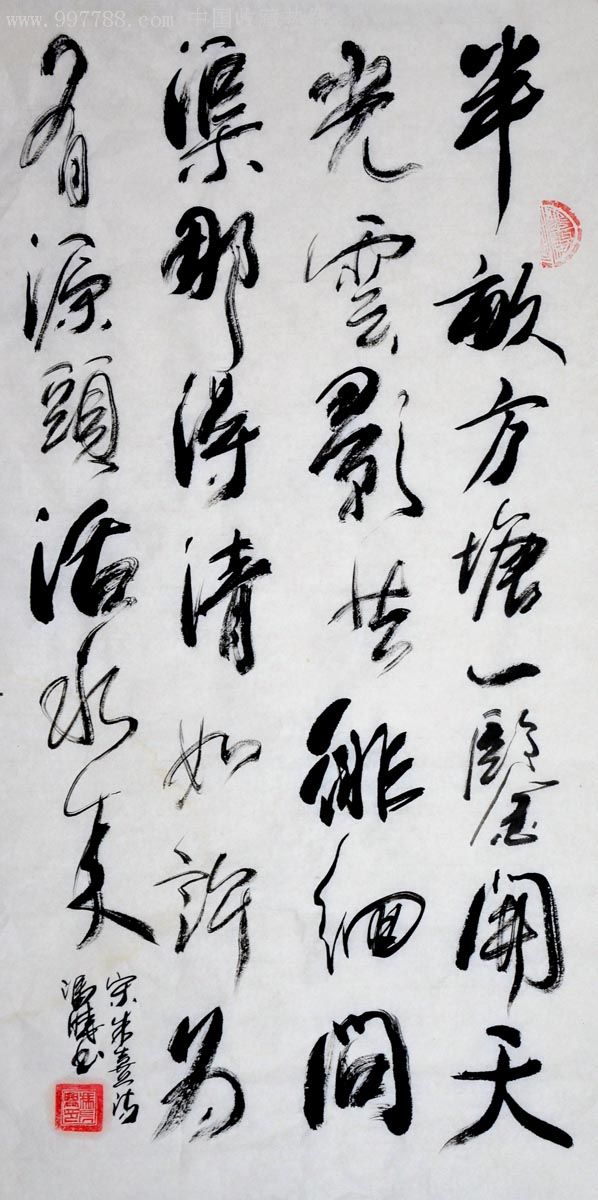 www.997788.com 中国收藏热线
半畝方塘一鑒開天
光雲影共徘徊問
渠那得清如許為
有源頭活水來
宋朱熹诗
书